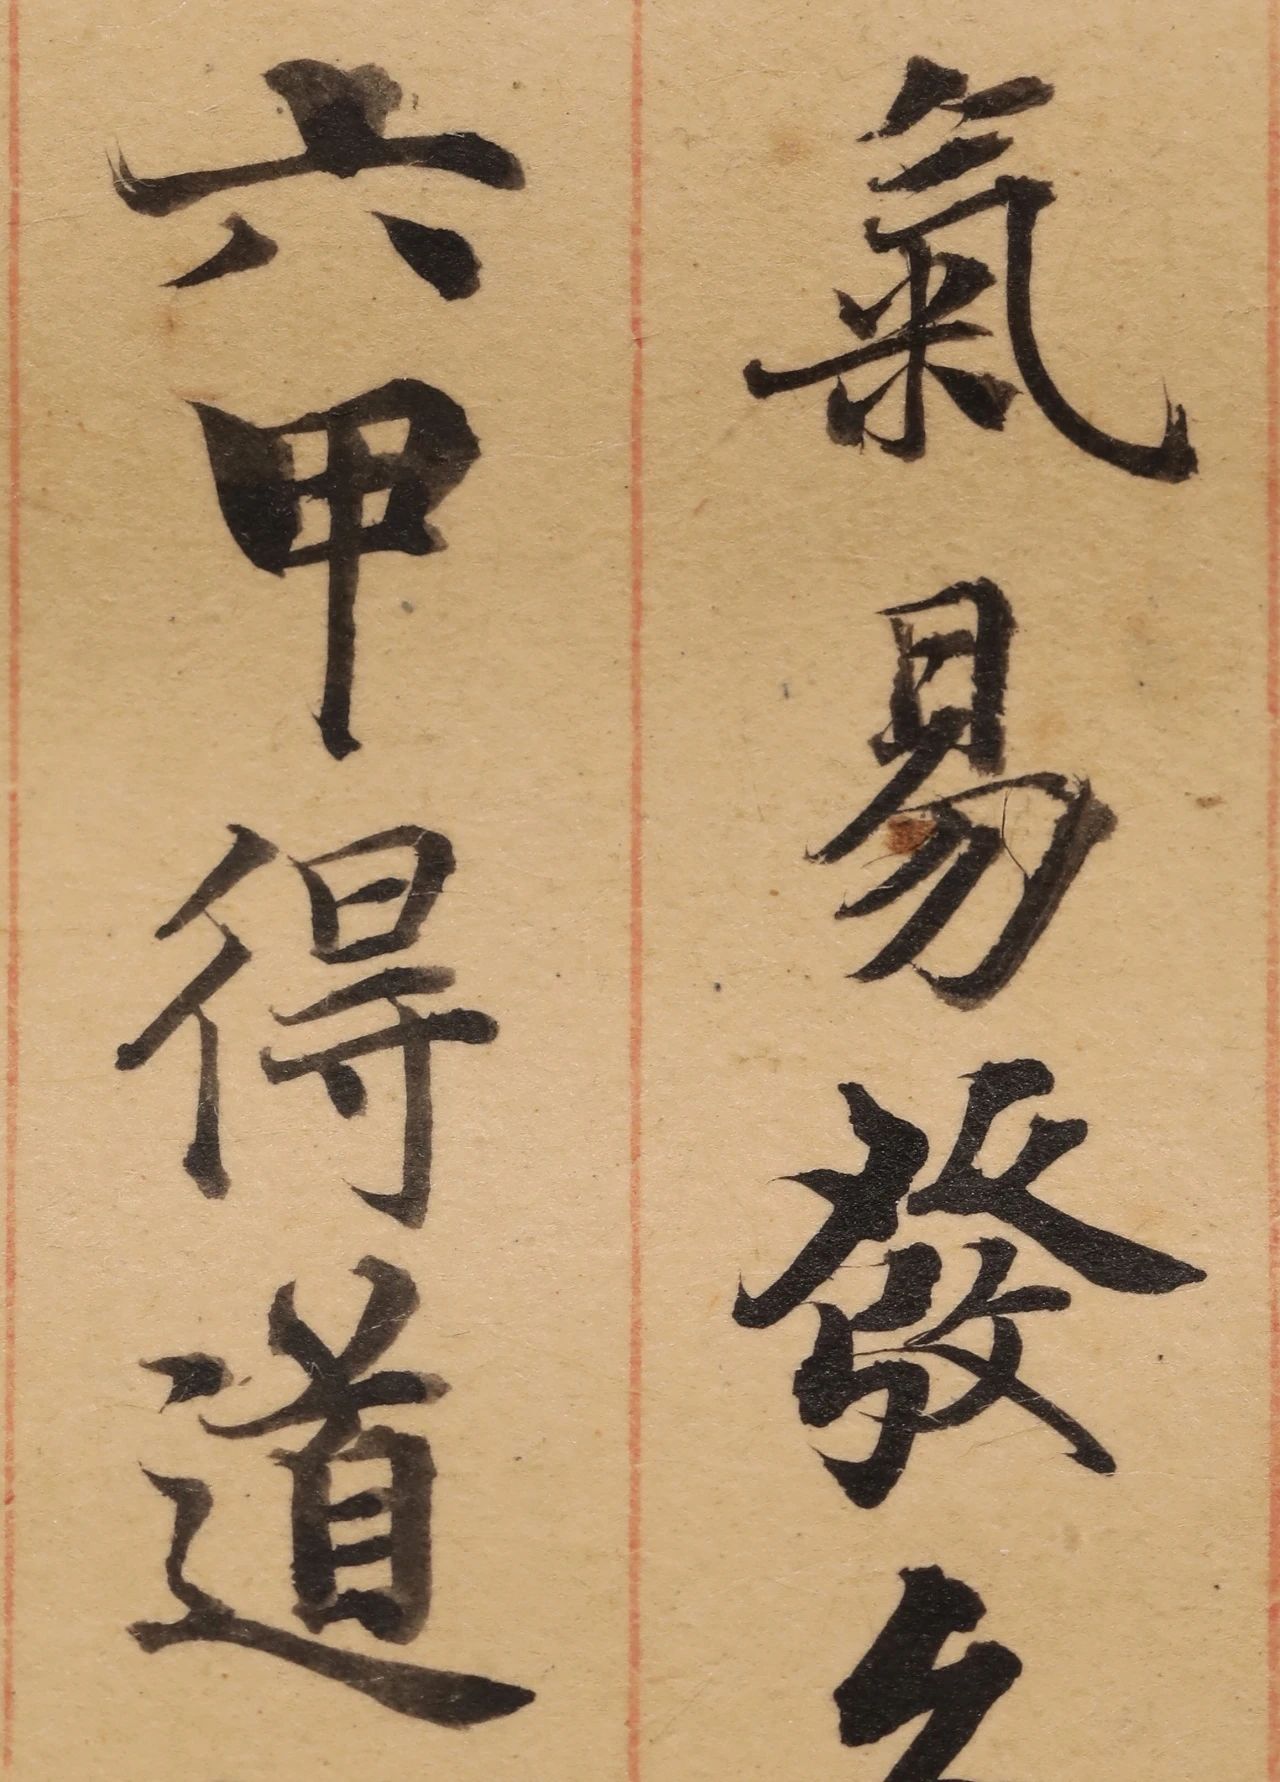 氣易發
六甲得道